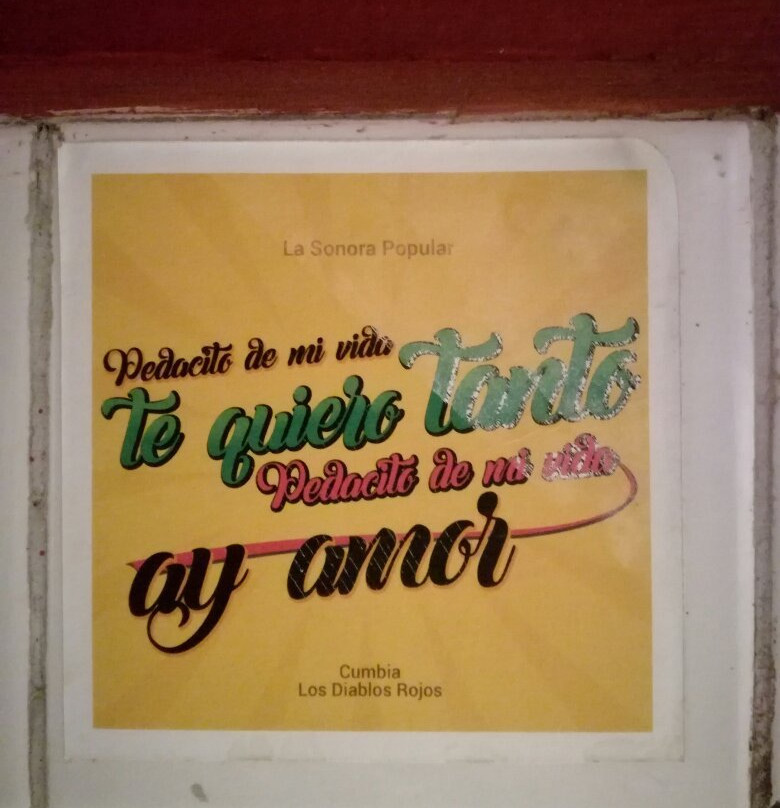 La Sonora Popular
Pedacito de mi vida
te quiero tanto
Pedacito de mi vida
ay amor
Cumbia
Los Diablos Rojos